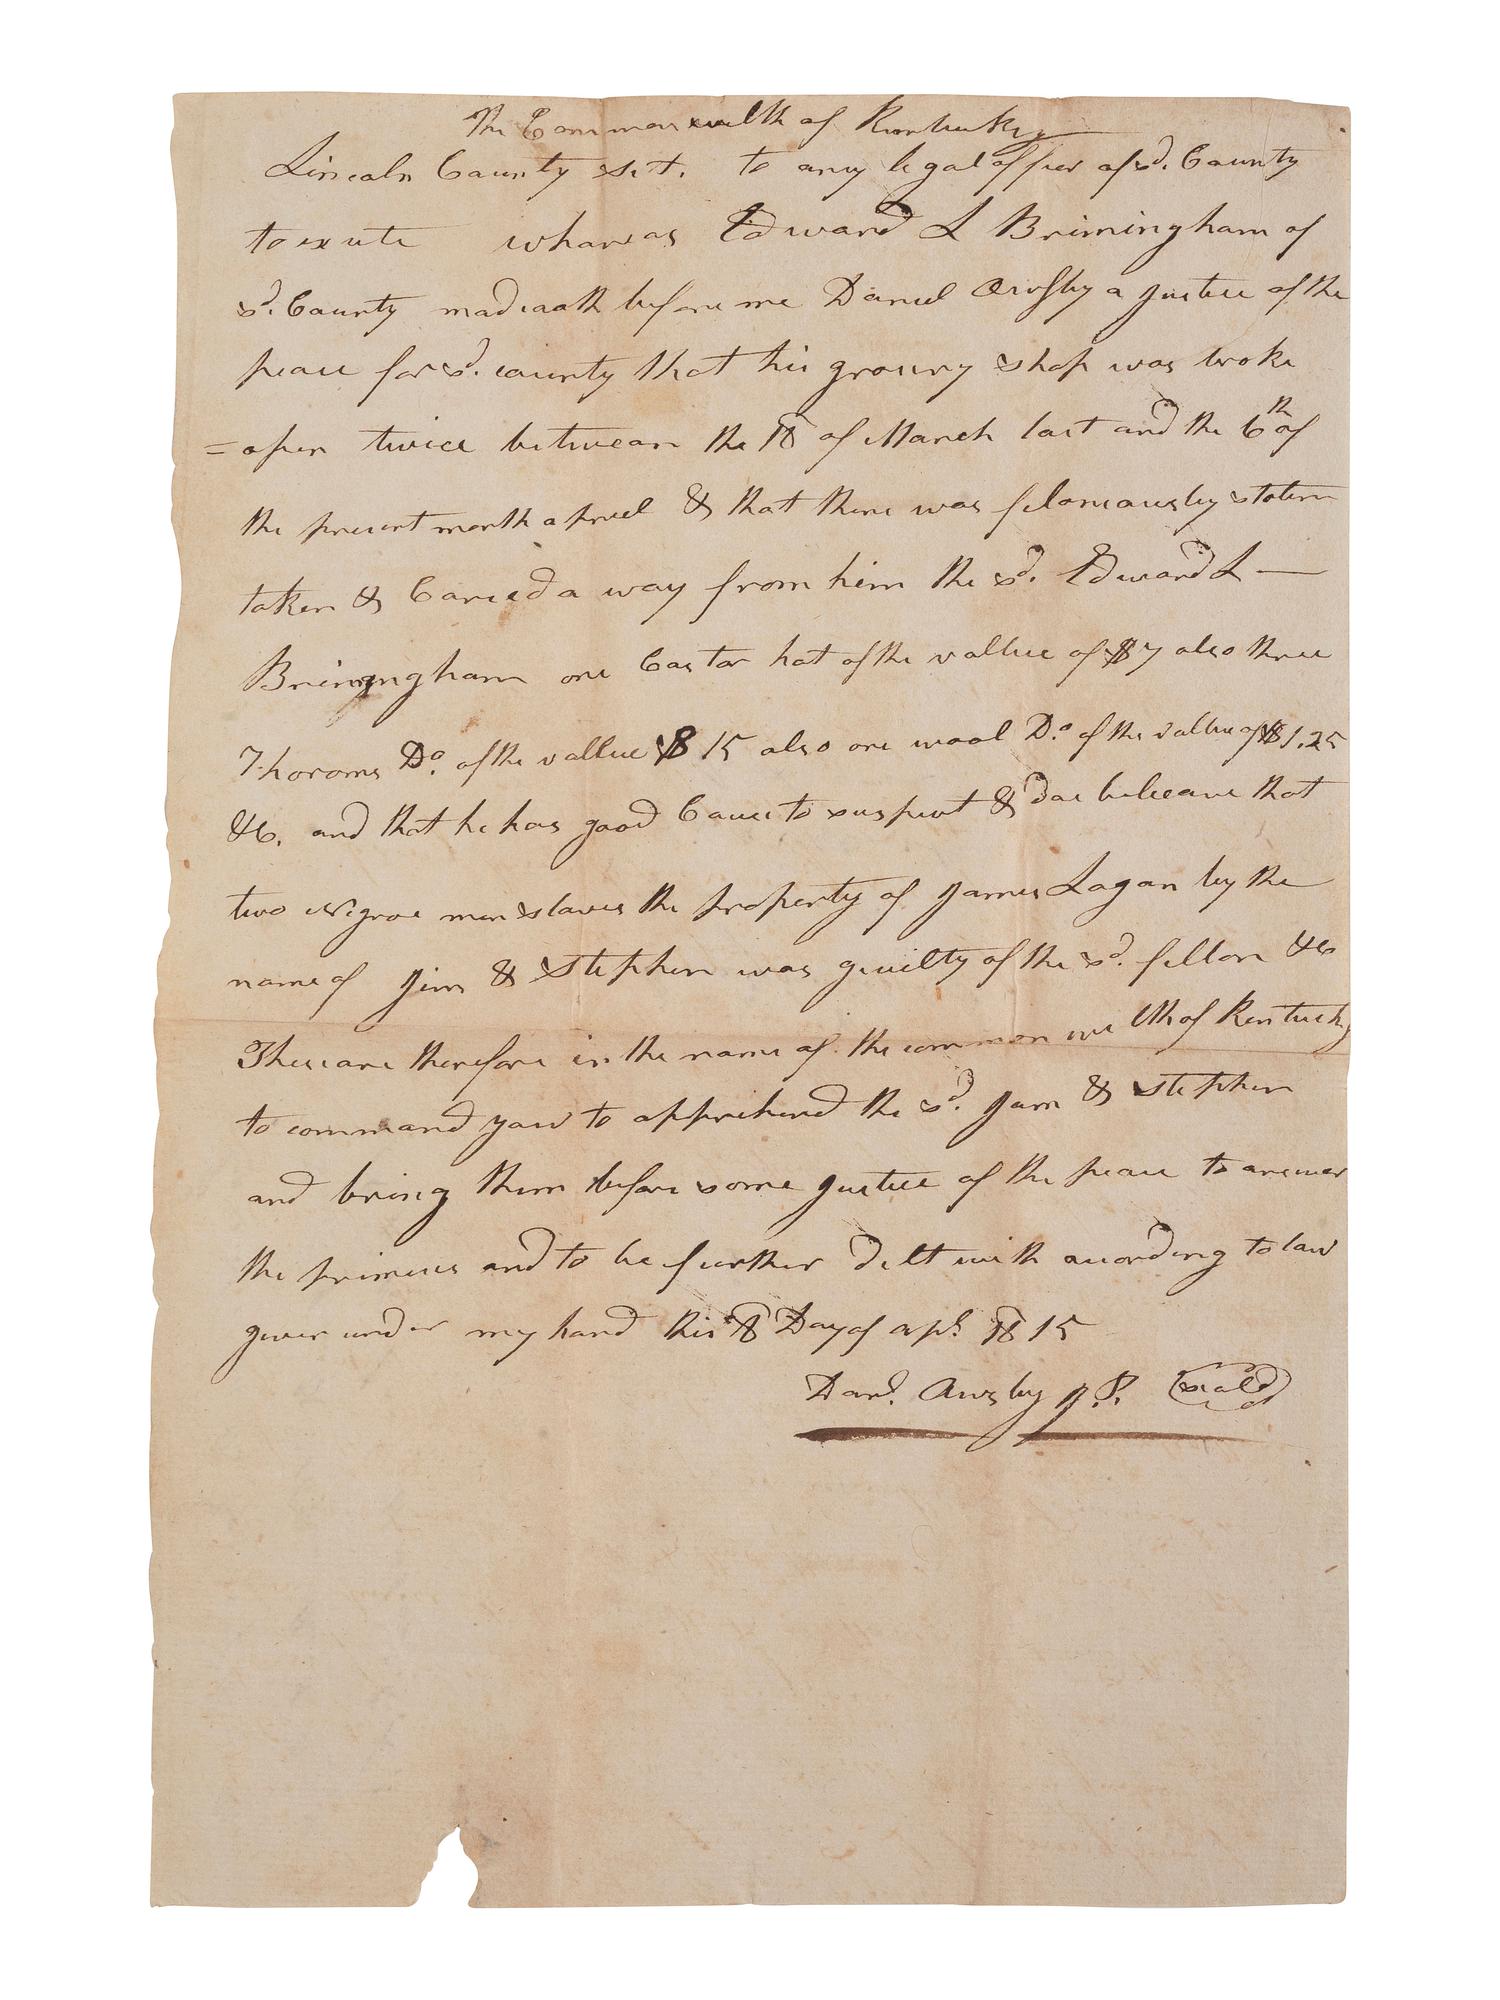 The Commonwealth of Kentucky
Lincoln County sct. to any legal officer of sd. County
to exute wharas Edward L Brimingham of
sd. County mad oath before me Daniel Owsley a Justice of the
peace for sd. county that his grocery shop was broke
= open twice between the 18 of March last and the 6th of
the present month aprel & that there was feloniously stolen
taken & Caried a way from him the sd. Edward L —
Brimingham one Castor hat of the vallue of $7 also three
Do. of the vallue $ 15 also one wool Do. of the vallue of $1.25
&C. and that he has good Cause to suspect & dos beleave that
two Negroe men slaves the property of James Logan by the
name of Jim & Stephen was guilty of the sd. fellon &c
These are therefore in the name of the common welth of Kentucky
to command you to apprehend the sd. Jam & Stephen
and bring them before some Justice of the peace to answer
the primices and to be further delt with according to law
given under my hand this 8 Day of apl. 1815
Danl. Owsley J.P. Seald